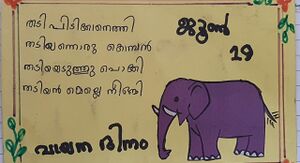 തടി പിടിക്കാനെത്തി
തടിയനൊരു കൊമ്പൻ
തടിയെടുത്തു പൊക്കി
തടിയൻ മെല്ലെ നീങ്ങി
ജൂൺ
19
വായന ദിനം